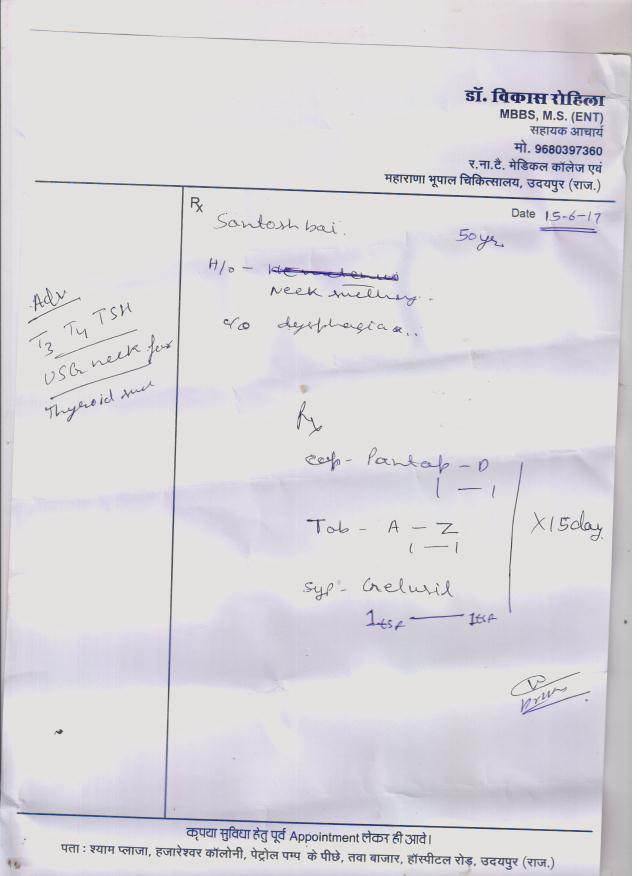 डॉ. विकास रोहिला
MBBS, M.S. (ENT)
सहायक आचार्य
मो. 9680397360
र.ना.टै. मेडिकल कॉलेज एवं
महाराणा भूपाल चिकित्सालय, उदयपुर (राज.)
Rx
Date 15-6-17
Santosh bai.
50 yr.
H/o -
Neck swelling.
c/o dysphagia..
Adv
T3 T4 TSH
USG neck for
Thyroid
Rx
cap- Pantop - D
1 — 1
Tab - A - Z
1 — 1
X15day
syp- Gelusil
1tsf — 1tsf
कृपया सुविधा हेतु पूर्व Appointment लेकर ही आवे।
पता : श्याम प्लाजा, हजारेश्वर कॉलोनी, पेट्रोल पम्प के पीछे, तवा बाजार, हॉस्पीटल रोड़, उदयपुर (राज.)